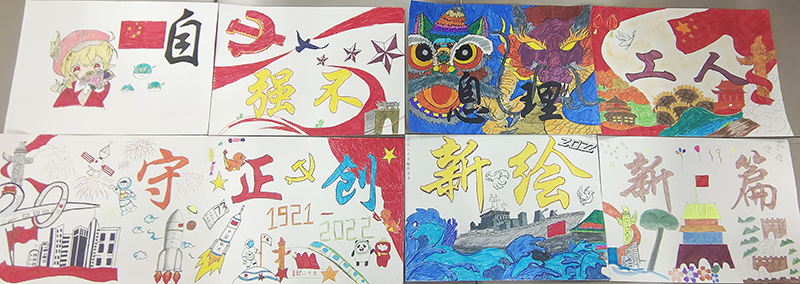 自强不息 理工人
守正创新绘新篇
1921-2022
2022
73
20